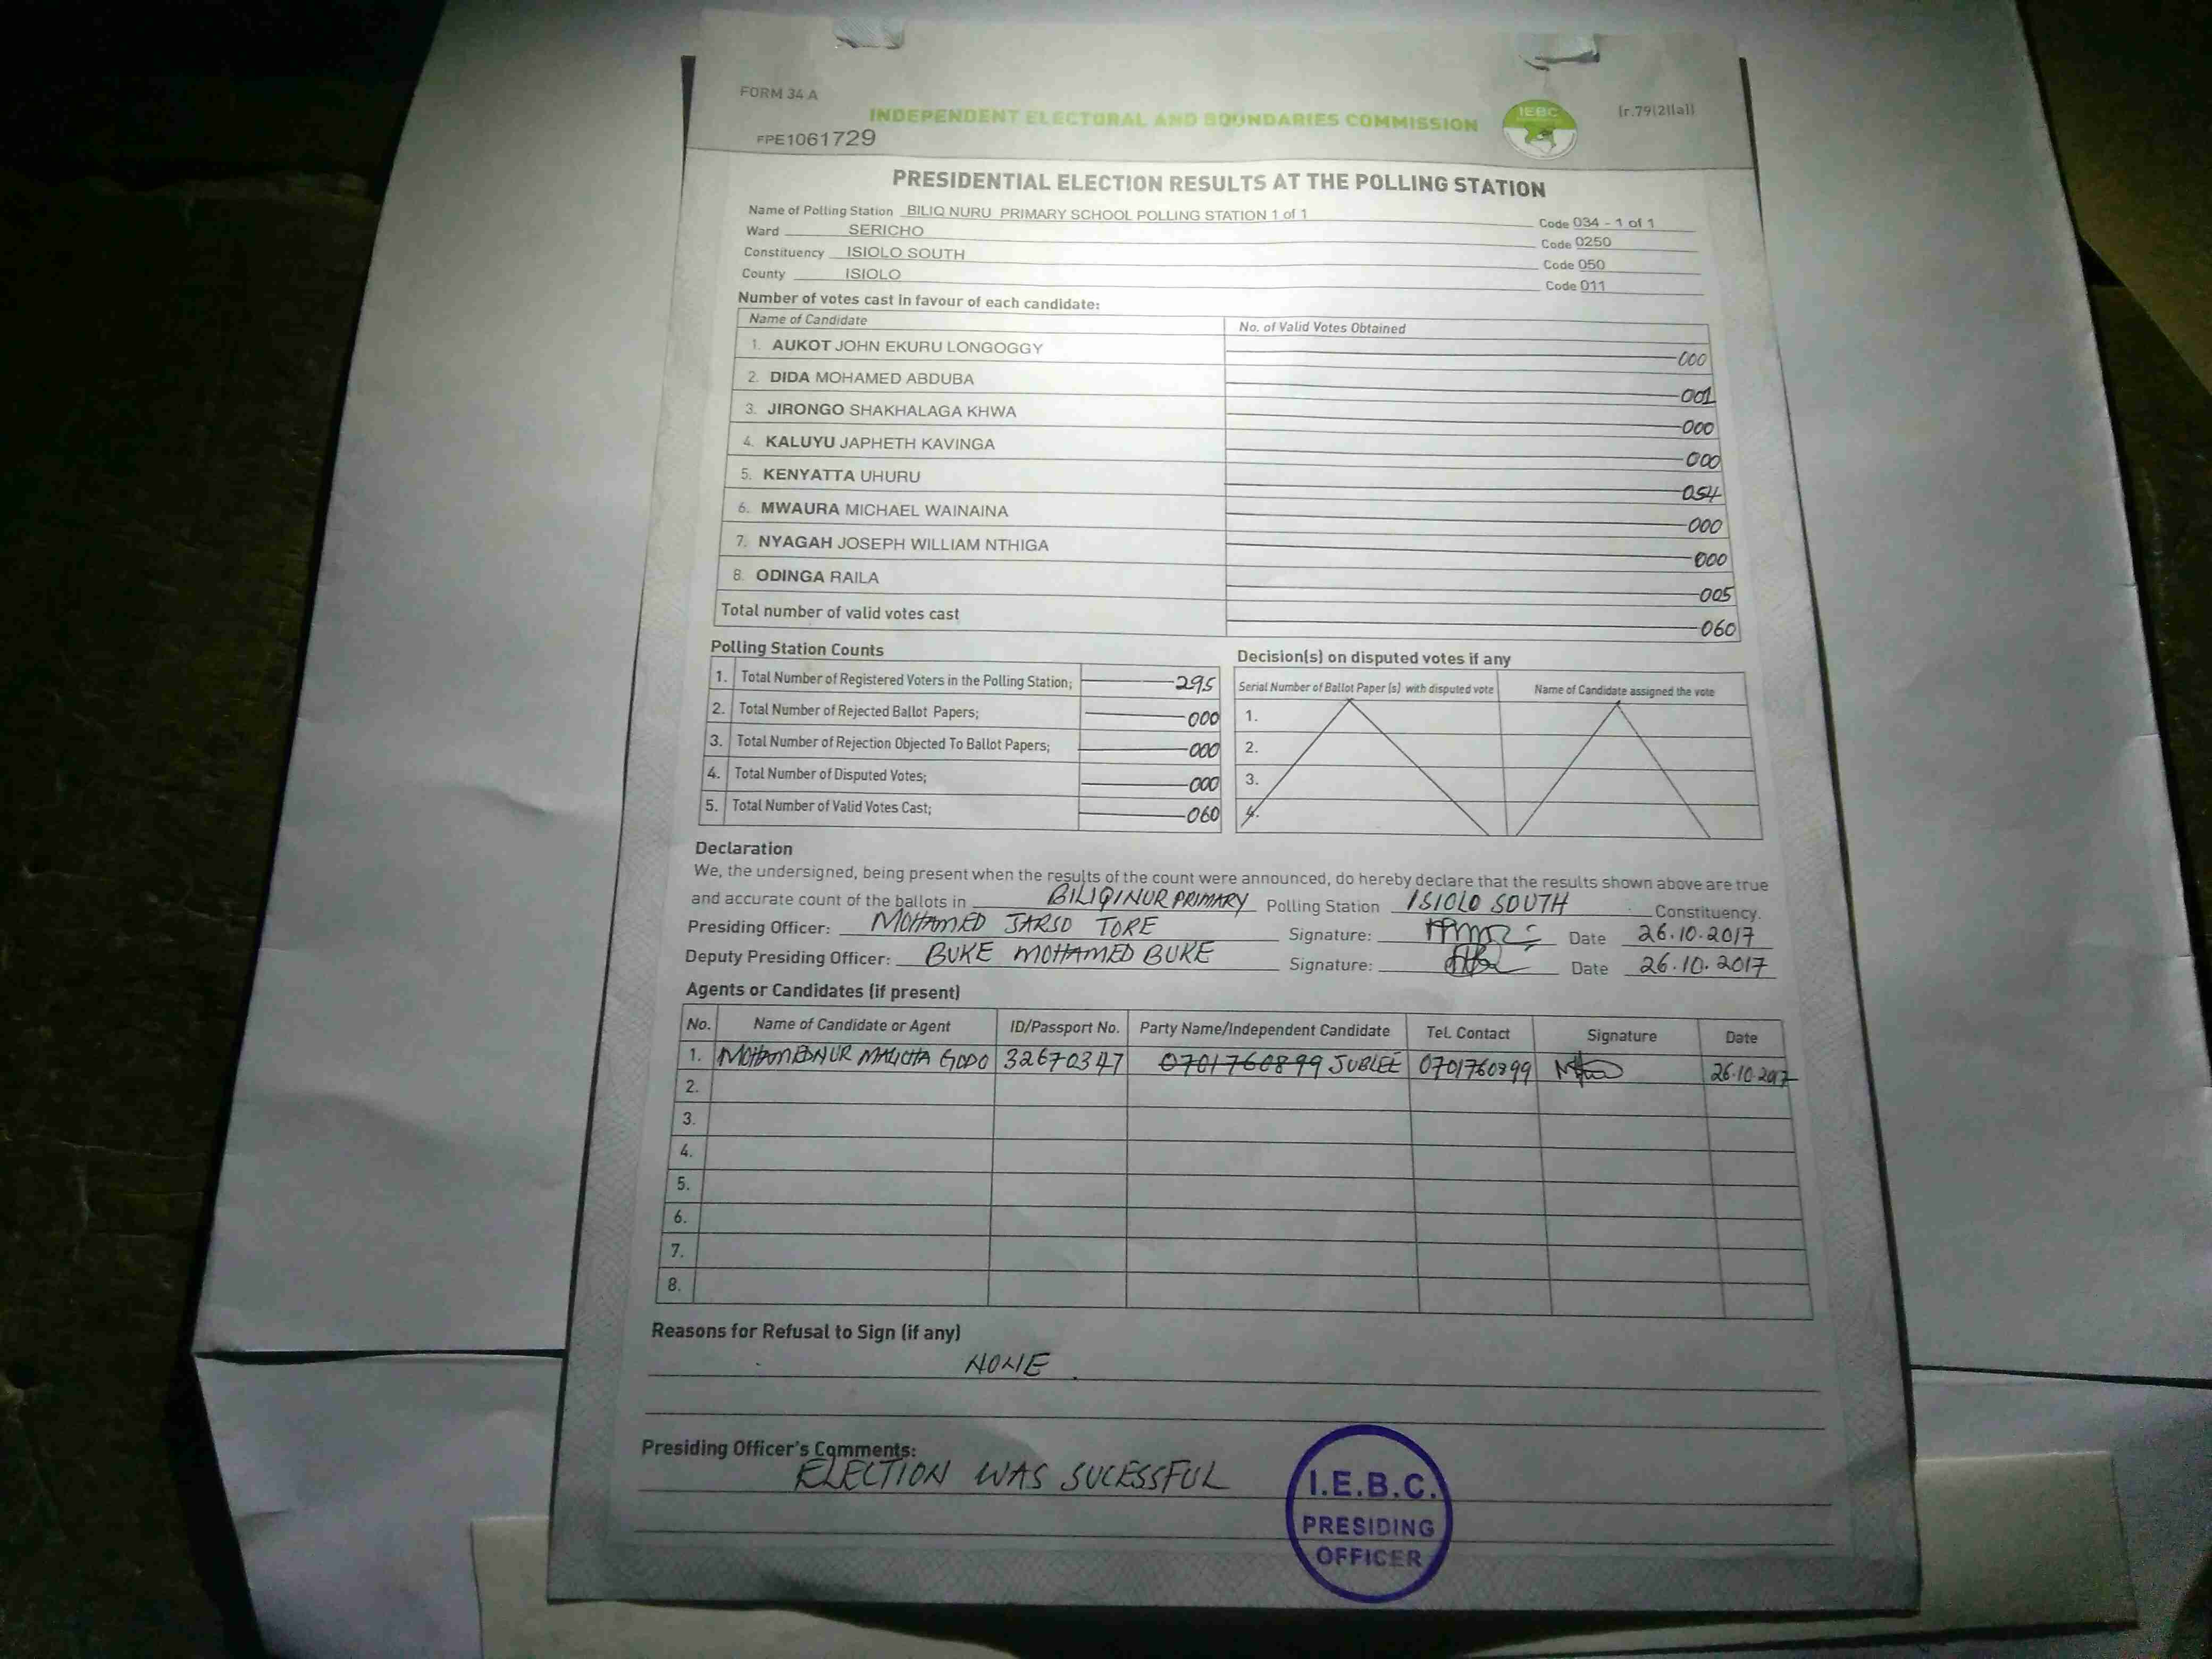 FORM 34 A
INDEPENDENT ELECTORAL AND BOUNDARIES COMMISSION
IEBC
(r.79(2)(a))
FPE1061729
PRESIDENTIAL ELECTION RESULTS AT THE POLLING STATION
Name of Polling Station BILIQ NURU PRIMARY SCHOOL POLLING STATION 1 of 1 Code 034 - 1 of 1
Ward SERICHO Code 0250
Constituency ISIOLO SOUTH Code 050
County ISIOLO Code 011
Number of votes cast in favour of each candidate:
Name of Candidate No. of Valid Votes Obtained
1. AUKOT JOHN EKURU LONGOGGY 000
2. DIDA MOHAMED ABDUBA 001
3. JIRONGO SHAKHALAGA KHWA 000
4. KALUYU JAPHETH KAVINGA 000
5. KENYATTA UHURU 054
6. MWAURA MICHAEL WAINAINA 000
7. NYAGAH JOSEPH WILLIAM NTHIGA 000
8. ODINGA RAILA 005
Total number of valid votes cast 060
Polling Station Counts
1. Total Number of Registered Voters in the Polling Station; 295
2. Total Number of Rejected Ballot Papers; 000
3. Total Number of Rejection Objected To Ballot Papers; 000
4. Total Number of Disputed Votes; 000
5. Total Number of Valid Votes Cast; 060
Decision(s) on disputed votes if any
Serial Number of Ballot Paper (s) with disputed vote Name of Candidate assigned the vote
1.
2.
3.
4.
Declaration
We, the undersigned, being present when the results of the count were announced, do hereby declare that the results shown above are true
and accurate count of the ballots in BILIQINUR PRIMARY Polling Station ISIOLO SOUTH Constituency.
Presiding Officer: MOHAMED JARSO TORE Signature: Date 26.10.2017
Deputy Presiding Officer: BUKE MOHAMED BUKE Signature: Date 26.10.2017
Agents or Candidates (if present)
No. Name of Candidate or Agent ID/Passport No. Party Name/Independent Candidate Tel. Contact Signature Date
1. MOHAMEDNUR MALICHA GODO 32670347 0701760899 JUBLEE 0701760899 26.10.2017
2.
3.
4.
5.
6.
7.
8.
Reasons for Refusal to Sign (if any)
NONE
Presiding Officer's Comments:
ELECTION WAS SUCESSFUL
I.E.B.C.
PRESIDING
OFFICER